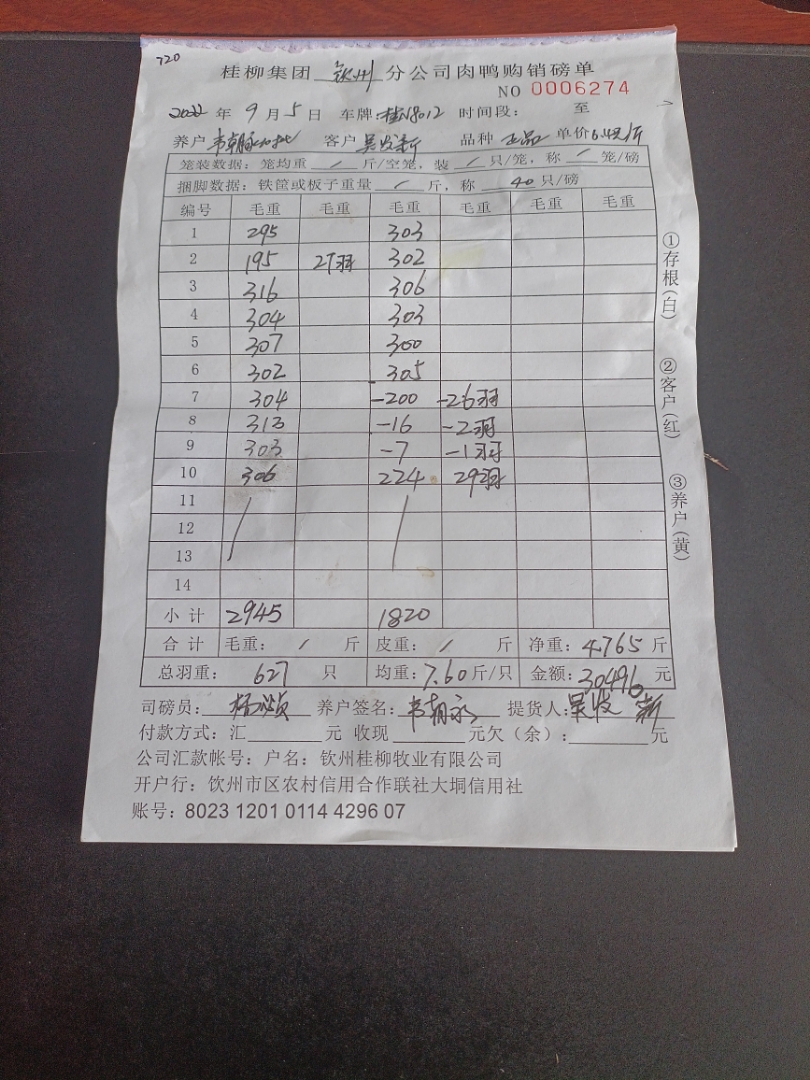 720
桂柳集团 钦州 分公司肉鸭购销磅单
NO 0006274
2022 年 9 月 5 日 车牌: 桂N8012 时间段: 至
养户 客户 吴发新 品种 正品 单价 6.4元/斤
笼装数据: 笼均重 / 斤/空笼, 装 / 只/笼, 称 / 笼/磅
捆脚数据: 铁筐或板子重量 / 斤, 称 40 只/磅
编号 毛重 毛重 毛重 毛重 毛重 毛重
1 295 303
2 195 27羽 302
3 316 306
4 304 303
5 307 300
6 302 305
7 304 -200 -26羽
8 313 -16 -2羽
9 303 -7 -1羽
10 306 224 29羽
11
12
13
14
小计 2945 1820
合计 毛重: / 斤 皮重: / 斤 净重: 4765 斤
总羽重: 627 只 均重: 7.60 斤/只 金额: 30496 元
司磅员: 养户签名: 韦朝永 提货人: 吴发新
付款方式: 汇 元 收现 元欠(余): 元
公司汇款帐号: 户名: 钦州桂柳牧业有限公司
开户行: 钦州市区农村信用合作联社大垌信用社
账号: 8023 1201 0114 4296 07
①存根(白)
②客户(红)
③养户(黄)